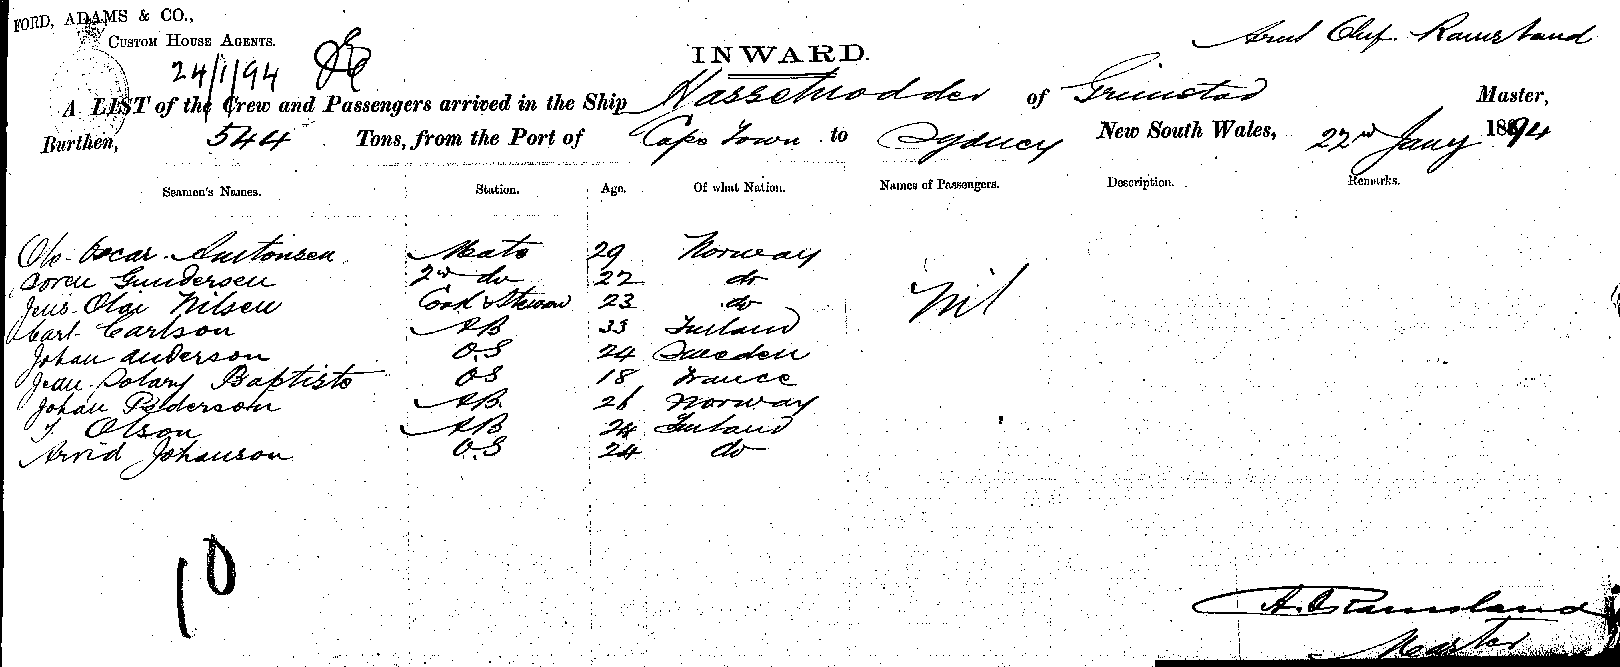 FORD, ADAMS & CO.,
CUSTOM HOUSE AGENTS.
24/1/94
Ramsland
INWARD.
A LIST of the Crew and Passengers arrived in the Ship of Grimstad Master,
Burthen, 544 Tons, from the Port of Cape Town to Sydney New South Wales, 22nd Jany 1894
Seamen's Names. Station. Age. Of what Nation. Names of Passengers. Description. Remarks.
Ole Oscar Mate 29 Norway
Soren Gundersen 2nd do 22 do
Jens Olai Nilsen Cook & Steward 23 do Nil
Carl Carlson AB 33 Finland
Johan Anderson OS 24 Sweden
Jean Baptiste OS 18 France
Johan Pederson AB 26 Norway
Olson AB 24 Finland
Arvid Johanson O.S 24 do
10
A. O Ramsland
Master